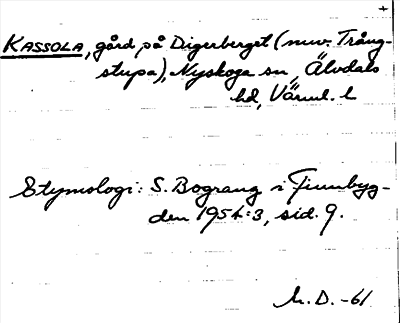 +
KASSOLA, gård på Digerberget (nuv. Trång-
stupa), Nyskoga sn, Älvdals
hd, Värml. l
Etymologi: S. Bograng i Finnbyg-
den 1954:3, sid. 9.
M.D. -61